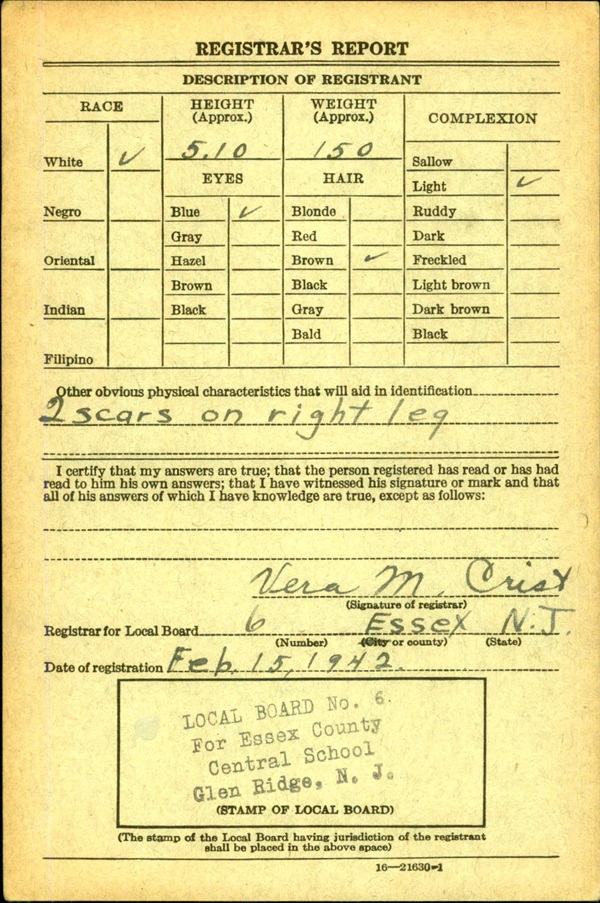 REGISTRAR'S REPORT
DESCRIPTION OF REGISTRANT
RACE
HEIGHT (Approx.)
WEIGHT (Approx.)
COMPLEXION
White ✓
5.10
150
Sallow
EYES
HAIR
Light ✓
Negro
Blue ✓
Blonde
Ruddy
Gray
Red
Dark
Oriental
Hazel
Brown ✓
Freckled
Brown
Black
Light brown
Indian
Black
Gray
Dark brown
Bald
Black
Filipino
Other obvious physical characteristics that will aid in identification
2 scars on right leg
I certify that my answers are true; that the person registered has read or has had
read to him his own answers; that I have witnessed his signature or mark and that
all of his answers of which I have knowledge are true, except as follows:
Vera M. Crist
(Signature of registrar)
Registrar for Local Board 6 Essex N.J.
(Number) (City or county) (State)
Date of registration Feb. 15, 1942.
LOCAL BOARD No. 6.
For Essex County
Central School
Glen Ridge, N. J.
(STAMP OF LOCAL BOARD)
(The stamp of the Local Board having jurisdiction of the registrant
shall be placed in the above space)
16—21630-1